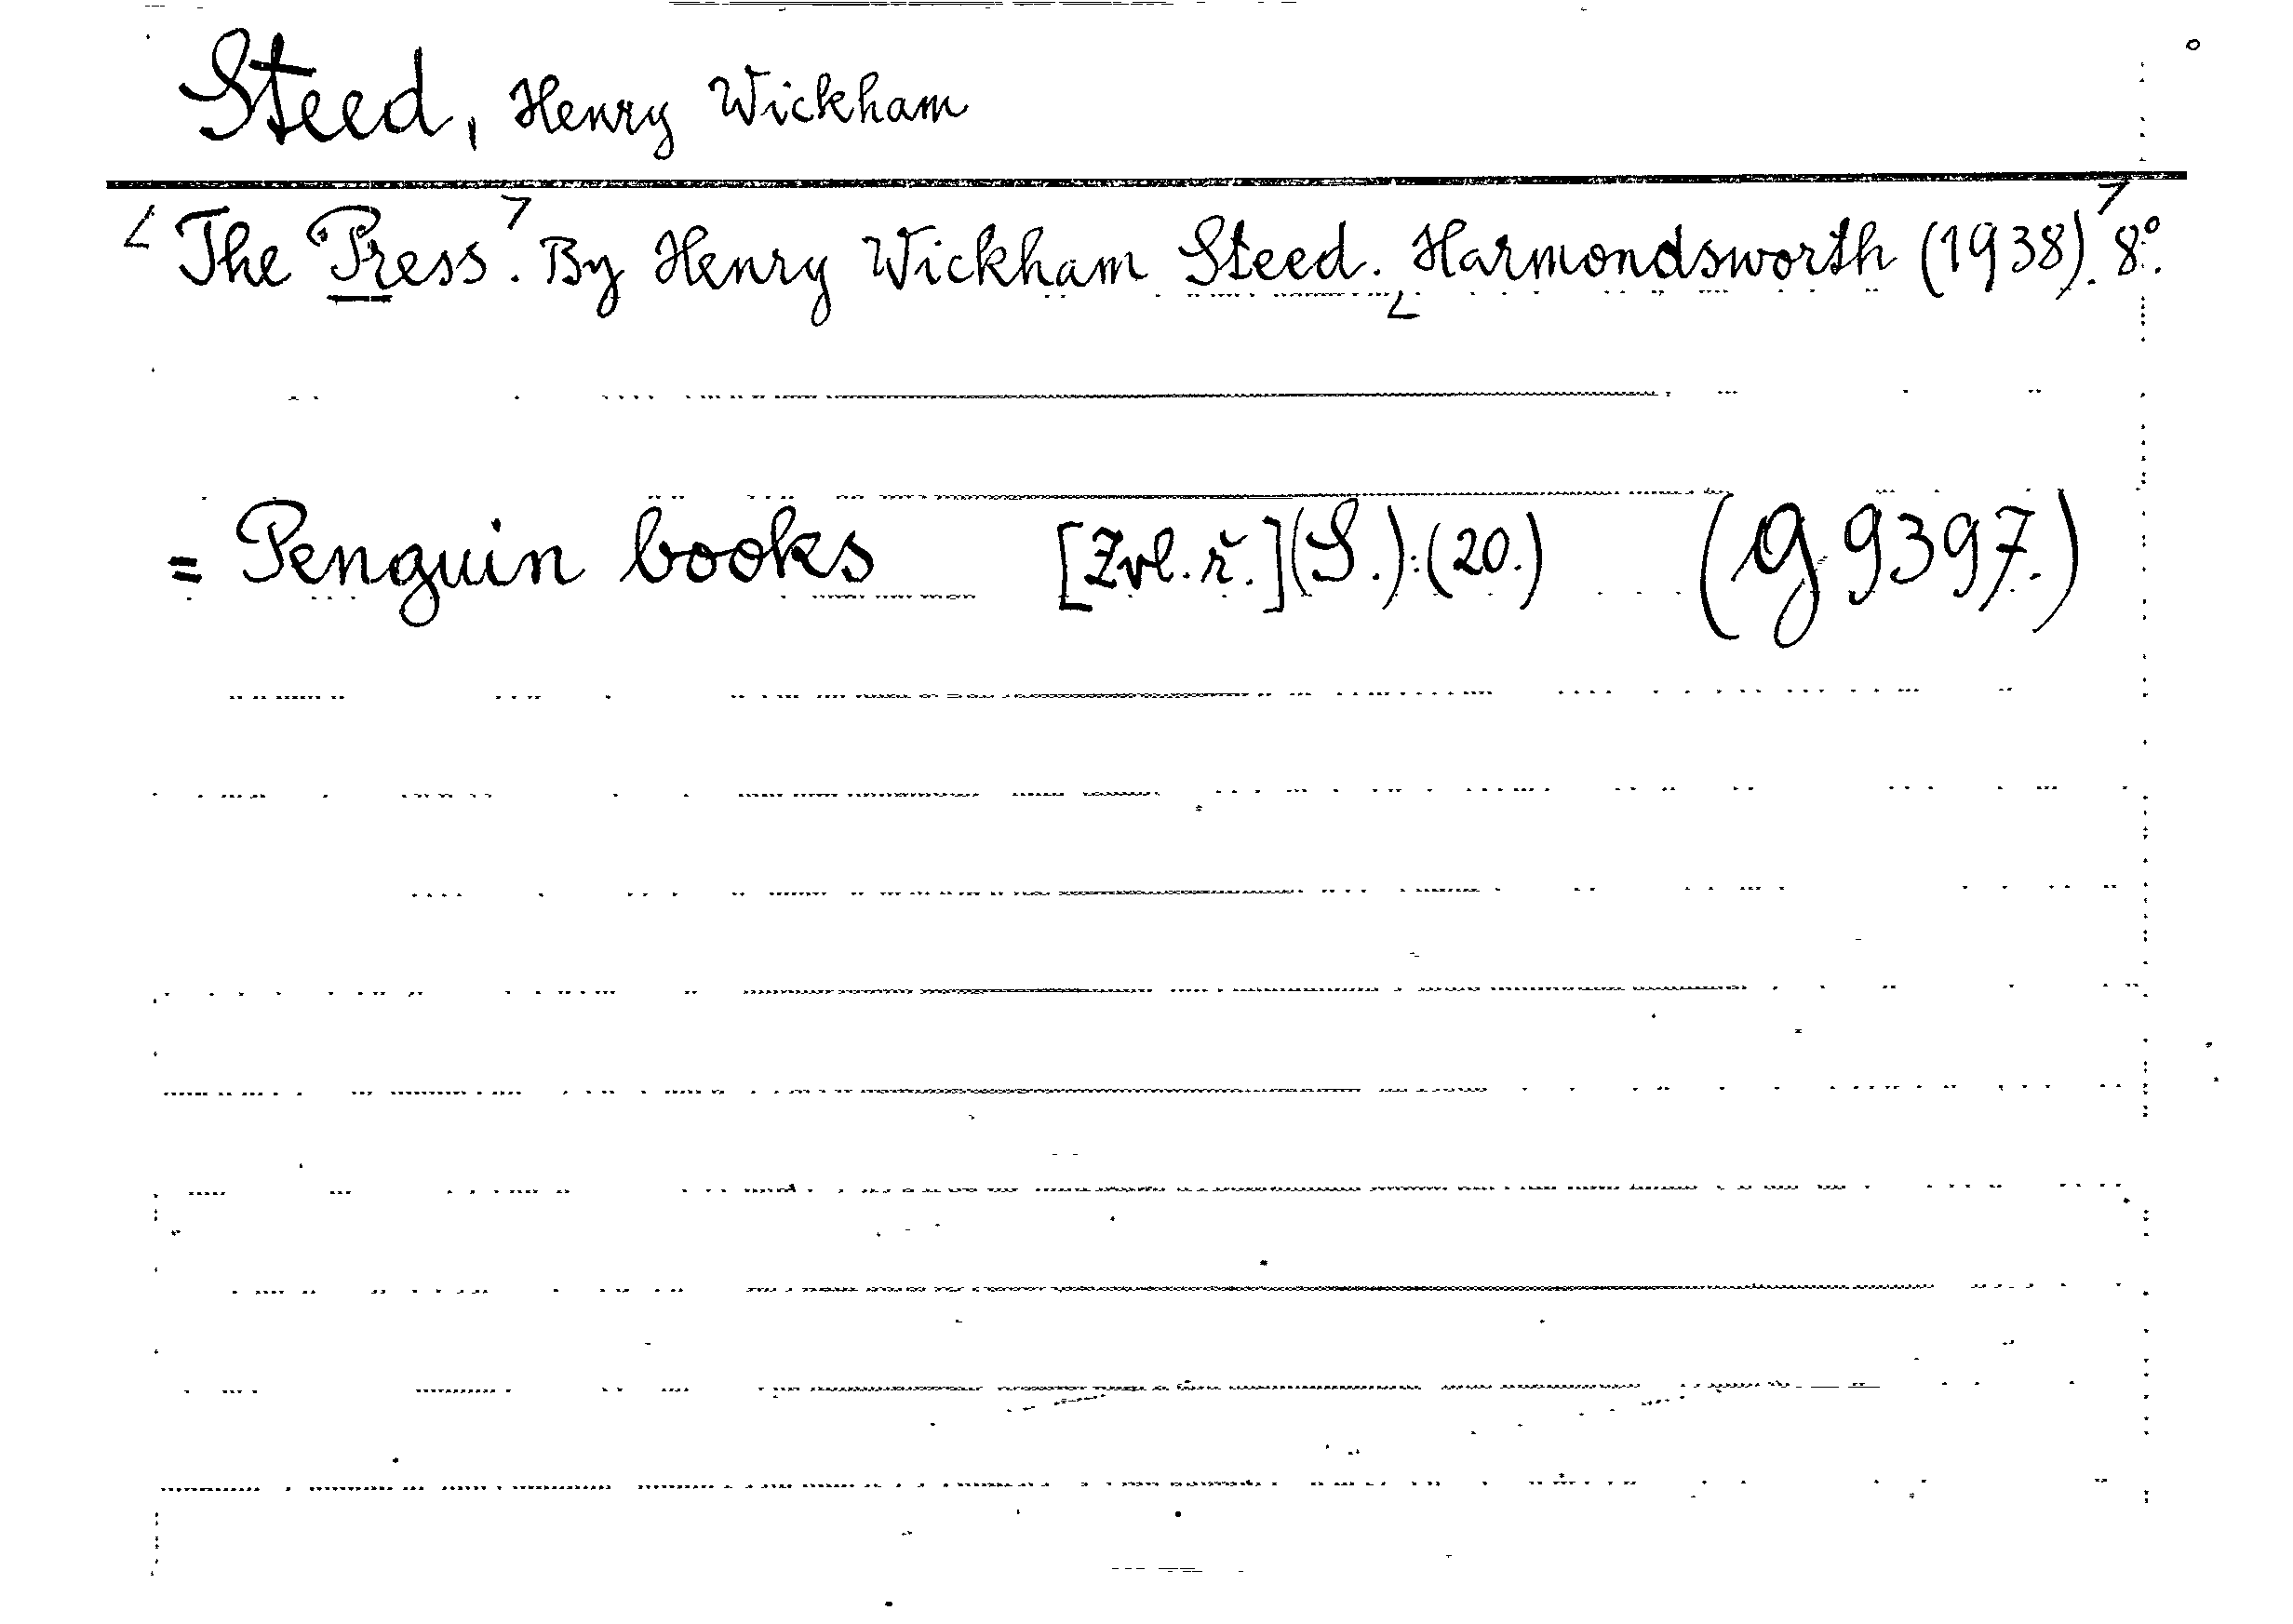 Steed, Henry Wickham
The Press. By Henry Wickham Steed. Harmondsworth (1938). 8°.
= Penguin books [Zvl. ř.] (S.): (20.) (G 9397.)